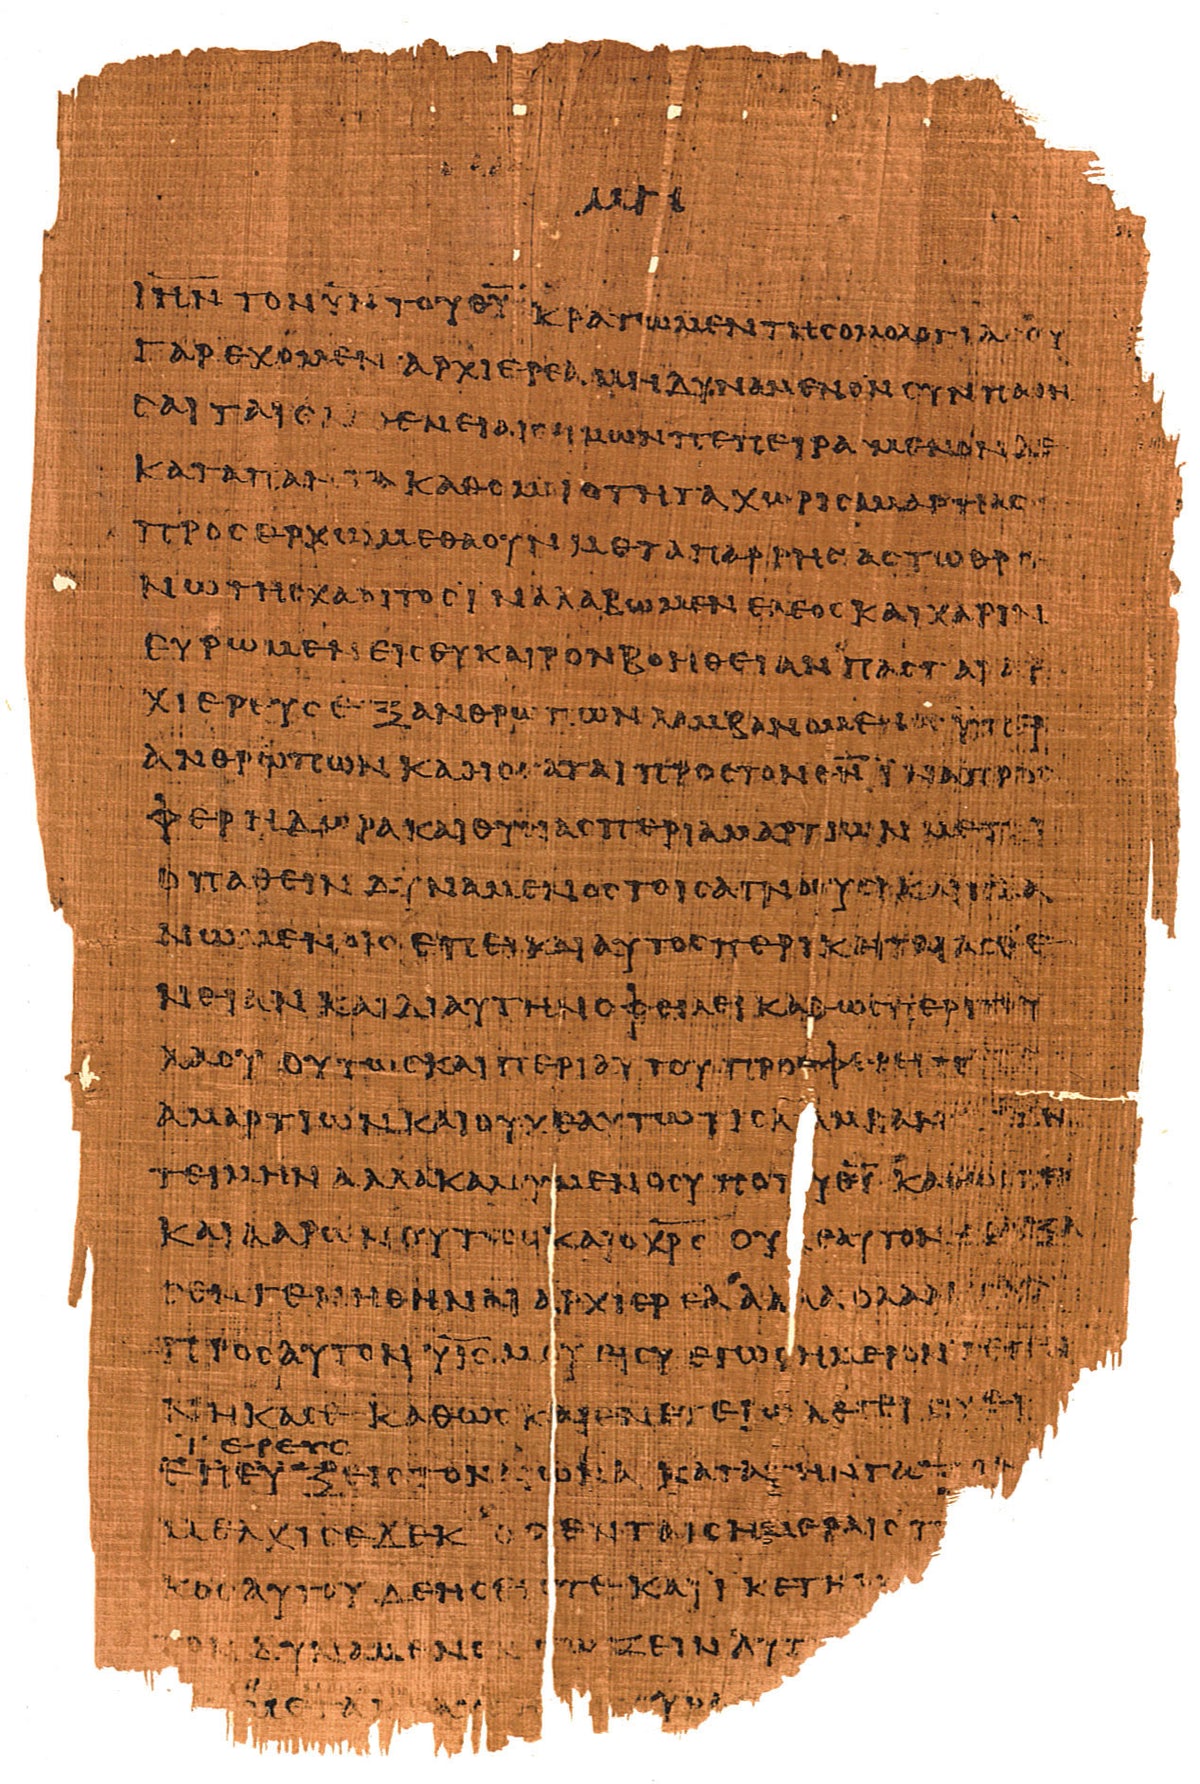 ΙΗΝ ΤΟΝ ΥΝ ΤΟΥ ΘΥ ΚΡΑΤΩΜΕΝ ΤΗϹ ΟΜΟΛΟΓΙΑϹ ΟΥ
ΓΑΡ ΕΧΟΜΕΝ ΑΡΧΙΕΡΕΑ ΜΗ ΔΥΝΑΜΕΝΟΝ ϹΥΝΠΑΘΗ
ϹΑΙ ΤΑΙϹ ΑϹΘΕΝΕΙΑΙϹ ΗΜΩΝ ΠΕΠΕΙΡΑΜΕΝΟΝ ΔΕ
ΚΑΤΑ ΠΑΝΤΑ ΚΑΘ ΟΜΟΙΟΤΗΤΑ ΧΩΡΙϹ ΑΜΑΡΤΙΑϹ
ΠΡΟϹΕΡΧΩΜΕΘΑ ΟΥΝ ΜΕΤΑ ΠΑΡΡΗϹΑϹ ΤΩ ΘΡΟ
ΝΩ ΤΗϹ ΧΑΡΙΤΟϹ ΙΝΑ ΛΑΒΩΜΕΝ ΕΛΕΟϹ ΚΑΙ ΧΑΡΙΝ
ΕΥΡΩΜΕΝ ΕΙϹ ΕΥΚΑΙΡΟΝ ΒΟΗΘΕΙΑΝ ΠΑϹ ΓΑΡ ΑΡ
ΧΙΕΡΕΥϹ ΕΞ ΑΝΘΡΩΠΩΝ ΛΑΜΒΑΝΟΜΕΝΟϹ ΥΠΕΡ
ΑΝΘΡΩΠΩΝ ΚΑΘΙϹΤΑΤΑΙ ΠΡΟϹ ΤΟΝ ΘΝ ΙΝΑ ΠΡΟϹ
ΦΕΡΗ ΔΩΡΑ ΚΑΙ ΘΥϹΙΑϹ ΠΕΡΙ ΑΜΑΡΤΙΩΝ ΜΕΤΡΙ
ΟΠΑΘΕΙΝ ΔΥΝΑΜΕΝΟϹ ΤΟΙϹ ΑΓΝΟΟΥϹΙ ΚΑΙ ΠΛΑ
ΝΩΜΕΝΟΙϹ ΕΠΕΙ ΚΑΙ ΑΥΤΟϹ ΠΕΡΙΚΕΙΤΑΙ ΑϹΘΕ
ΝΕΙΑΝ ΚΑΙ ΔΙ ΑΥΤΗΝ ΟΦΕΙΛΕΙ ΚΑΘΩϹ ΠΕΡΙ ΤΟΥ
ΛΑΟΥ ΟΥΤΩϹ ΚΑΙ ΠΕΡΙ ΑΥΤΟΥ ΠΡΟϹΦΕΡΕΙΝ
ΑΜΑΡΤΙΩΝ ΚΑΙ ΟΥΧ ΕΑΥΤΩ ΤΙϹ ΛΑΜΒΑΝΕΙ ΤΗΝ
ΤΕΙΜΗΝ ΑΛΛΑ ΚΑΛΟΥΜΕΝΟϹ ΥΠΟ ΤΟΥ ΘΥ ΚΑΘΩϹΠΕΡ
ΚΑΙ ΑΑΡΩΝ ΟΥΤΩϹ ΚΑΙ Ο ΧΡϹ ΟΥΧ ΕΑΥΤΟΝ ΕΔΟΞΑ
ϹΕΝ ΓΕΝΗΘΗΝΑΙ ΑΡΧΙΕΡΕΑ ΑΛΛΑ Ο ΛΑΛΗϹΑϹ
ΠΡΟϹ ΑΥΤΟΝ ΥΙϹ ΜΟΥ ΕΙ ϹΥ ΕΓΩ ϹΗΜΕΡΟΝ ΓΕΓΕΝ
ΝΗΚΑ ϹΕ ΚΑΘΩϹ ΚΑΙ ΕΝ ΕΤΕΡΩ ΛΕΓΕΙ ϹΥ ΕΙ
ΙΕΡΕΥϹ
ΕΠΕΥΞ ΕΙϹ ΤΟΝ ΑΙΩΝΑ ΚΑΤΑ ΤΗΝ ΤΑΞΙΝ
ΜΕΛΧΙϹΕΔΕΚ ΟϹ ΕΝ ΤΑΙϹ ΗΜΕΡΑΙϹ Τ
ΚΟϹ ΑΥΤΟΥ ΔΕΗϹΕΙϹ ΤΕ ΚΑΙ ΙΚΕΤΗ
ΤΟΝ ΔΥΝΑΜΕΝΟΝ ϹΩΖΕΙΝ ΑΥΤ